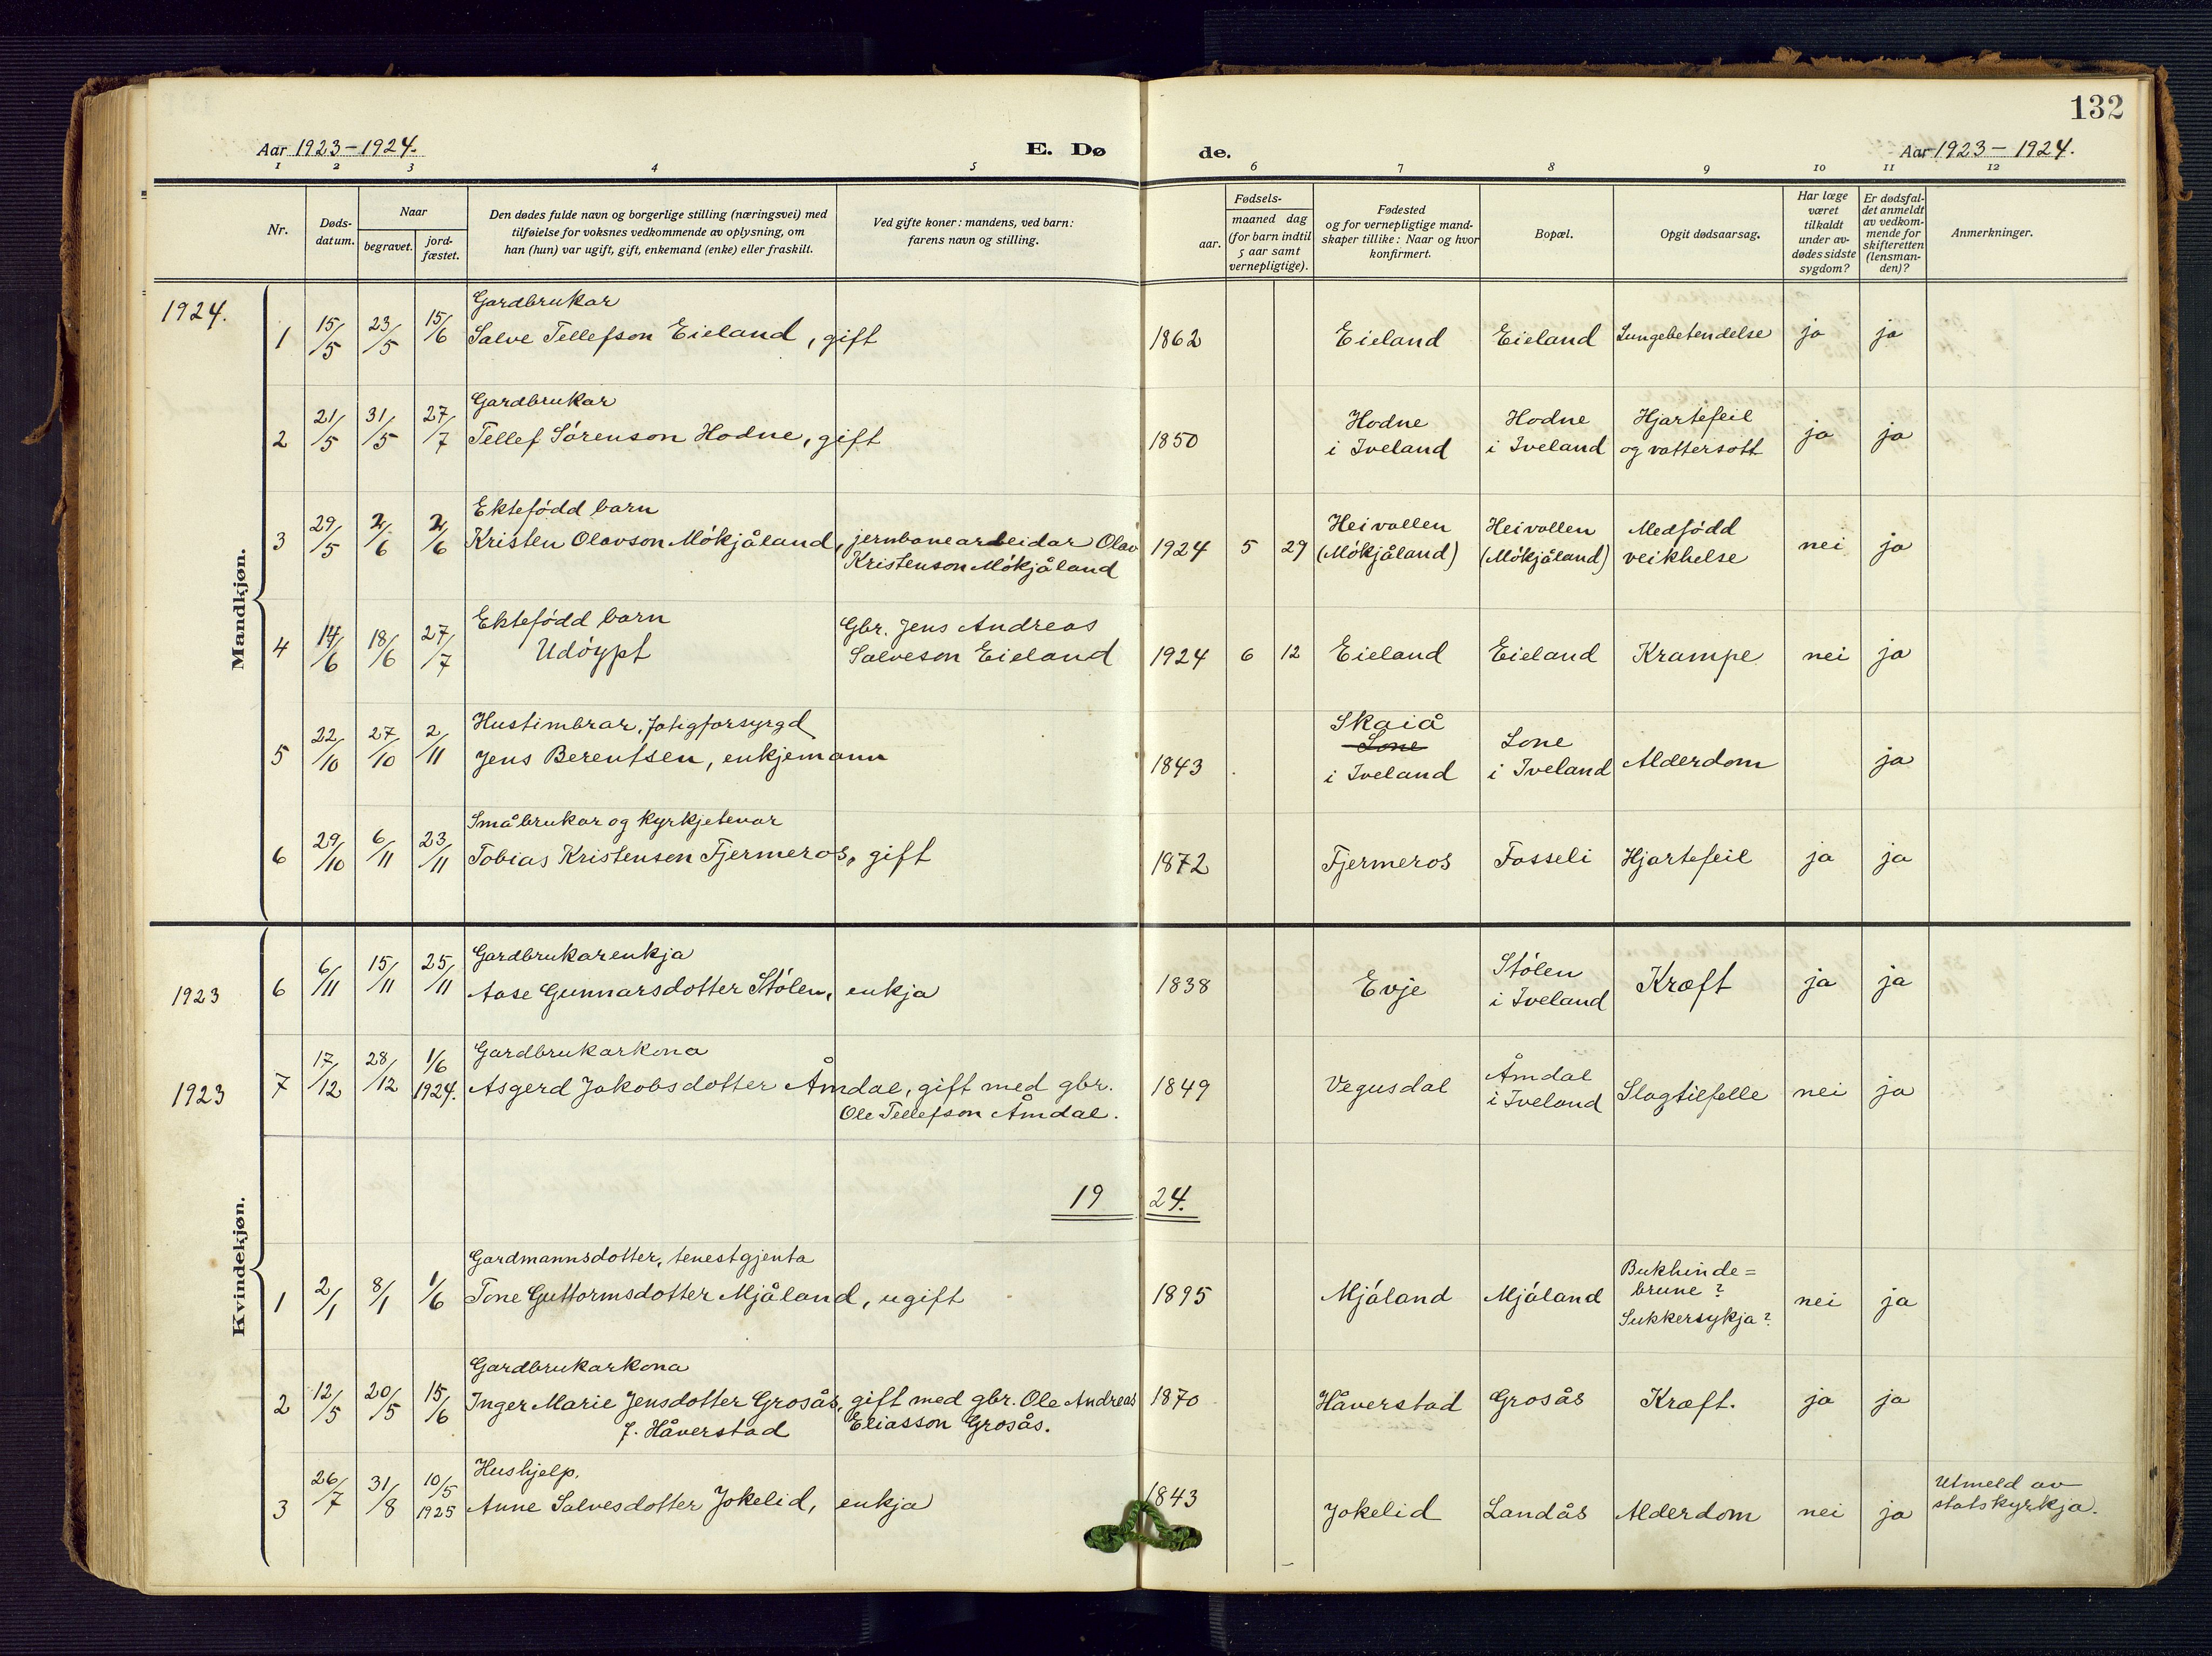 132
Aar 1923 – 1924.
E. Dø de.
Aar 1923 – 1924.
1 2 3 4 5 6 7 8 9 10 11 12
Nr.
Døds-
datum.
Naar
begravet.
jord-
fæstet.
Den dødes fulde navn og borgerlige stilling (næringsvei) med
tilføielse for voksnes vedkommende av oplysning, om
han (hun) var ugift, gift, enkemand (enke) eller fraskilt.
Ved gifte koner: mandens, ved barn:
farens navn og stilling.
Fødsels-
aar.
maaned dag
(for barn indtil
5 aar samt
vernepligtige).
Fødested
og for vernepligtige mand-
skaper tillike: Naar og hvor
konfirmert.
Bopæl.
Opgit dødsaarsag.
Har læge
været
tilkaldt
under av-
dødes sidste
sygdom?
Er dødsfal-
det anmeldt
av vedkom-
mende for
skifteretten
(lensman-
den)?
Anmerkninger.
Mandkjøn.
1924.
Gardbrukar
1 15/5 23/5 15/6 Salve Tellefson Eieland, gift 1862 Eieland Eieland Lungebetendelse ja ja
Gardbrukar
2 21/5 31/5 27/7 Tellef Sørenson Hodne, gift 1850 Hodne i Iveland Hodne i Iveland Hjartefeil og vattersott ja ja
Ektefødd barn
3 29/5 2/6 2/6 Kristen Olavson Mökjåland, jernbanearbeidar Olav 1924 5 29 Heivollen (Mökjåland) Heivollen (Mökjåland) Medfødd veikhelse nei ja
Kristenson Mökjåland
Ektefødd barn Gbr. Jens Andreas
4 14/6 18/6 27/7 Udöypt Salveson Eieland 1924 6 12 Eieland Eieland Krampe nei ja
Hustimbrar, fatigforsyrgd
5 22/10 27/10 2/11 Jens Berentsen, enkjemann 1843 Skaiå Lone i Iveland Lone i Iveland Alderdom ja
Småbrukar og kyrkjetenar
6 29/10 6/11 23/11 Tobias Kristensen Fjermeros, gift 1872 Fjermeros Fosseli Hjartefeil ja ja
Kvindekjøn.
Gardbrukarenkja
1923 6 6/11 15/11 25/11 Aase Gunnarsdotter Stölen, enkja 1838 Evje Stölen i Iveland Kræft ja ja
Gardbrukarkona
1923 7 17/12 28/12 1/6 1924. Asgerd Jakobsdotter Åmdal, gift med gbr. 1849 Vegusdal Åmdal i Iveland Slagtilfelle nei ja
Ole Tellefson Åmdal.
19 24.
Gardmannsdotter, tenestgjenta
1 2/1 8/1 1/6 Tone Guttormsdotter Mjåland, ugift 1895 Mjåland Mjåland Bukhinde=
brune?
Sukkersykja? nei ja
Gardbrukarkona
2 12/5 20/5 15/6 Inger Marie Jensdotter Grosås, gift med gbr. Ole Andreas 1870 Håverstad Grosås Kræft. ja ja
f. Håverstad Eliasson Grosås.
Hushjelp.
3 26/7 31/8 10/5 1925 Anne Salvesdotter Jokelid, enkja 1843 Jokelid Landås Alderdom nei ja Utmeld av
statskyrkja.